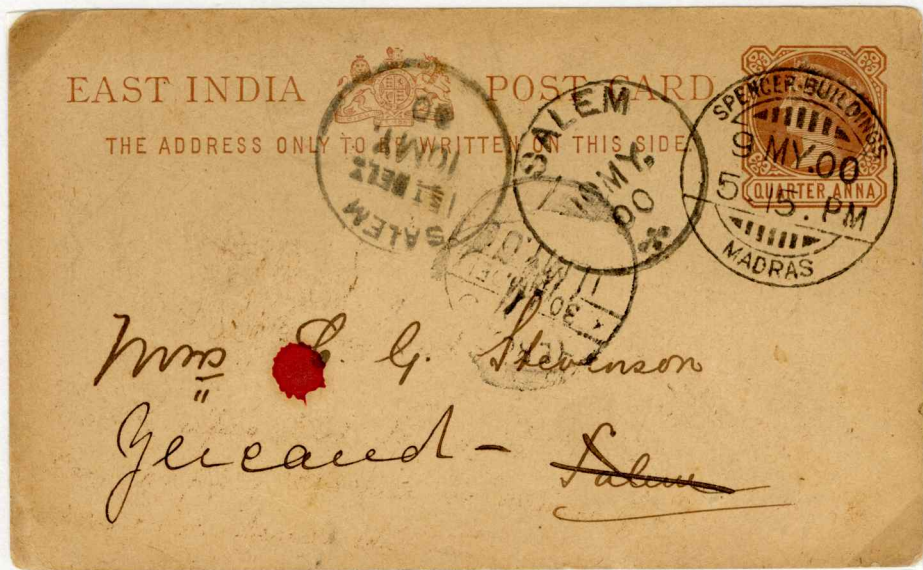 EAST INDIA POST CARD
THE ADDRESS ONLY TO BE WRITTEN ON THIS SIDE
QUARTER ANNA
SPENCER-BUILDINGS
9 MY.00
5.15.PM
MADRAS
SALEM
10 MY.
00
SALEM
1ST DELY
10 MAY.
00
11 MY.00
G. Stevenson
Yercaud -
Salem